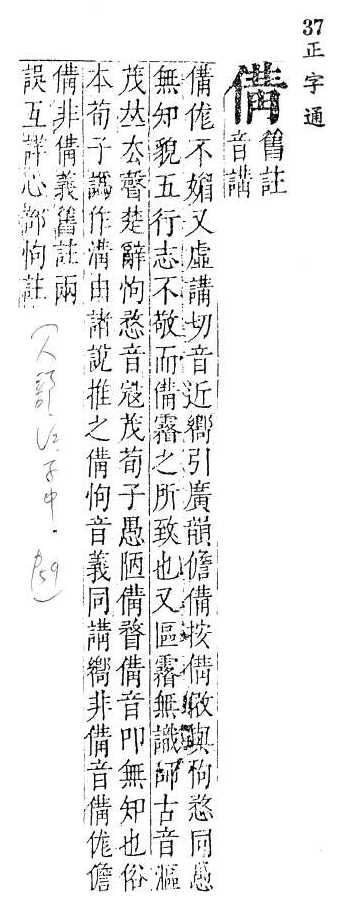 37正字通
傋
舊註
音講
傋𠊧不媚又虛講切音近嚮引廣韻傋按傋敄與怐愗同愚
無知貌五行志不敬而傋霿之所致也又區霿無識師古音漚
茂𠀤去聲楚辭怐愗音寇茂荀子愚陋傋瞀傋音叩無知也俗
本荀子譌作溝由諸說推之傋怐音義同講嚮非傋音傋𠊧
傋非傋義舊註兩
誤互詳心部怐註
(人部 子中. P59)